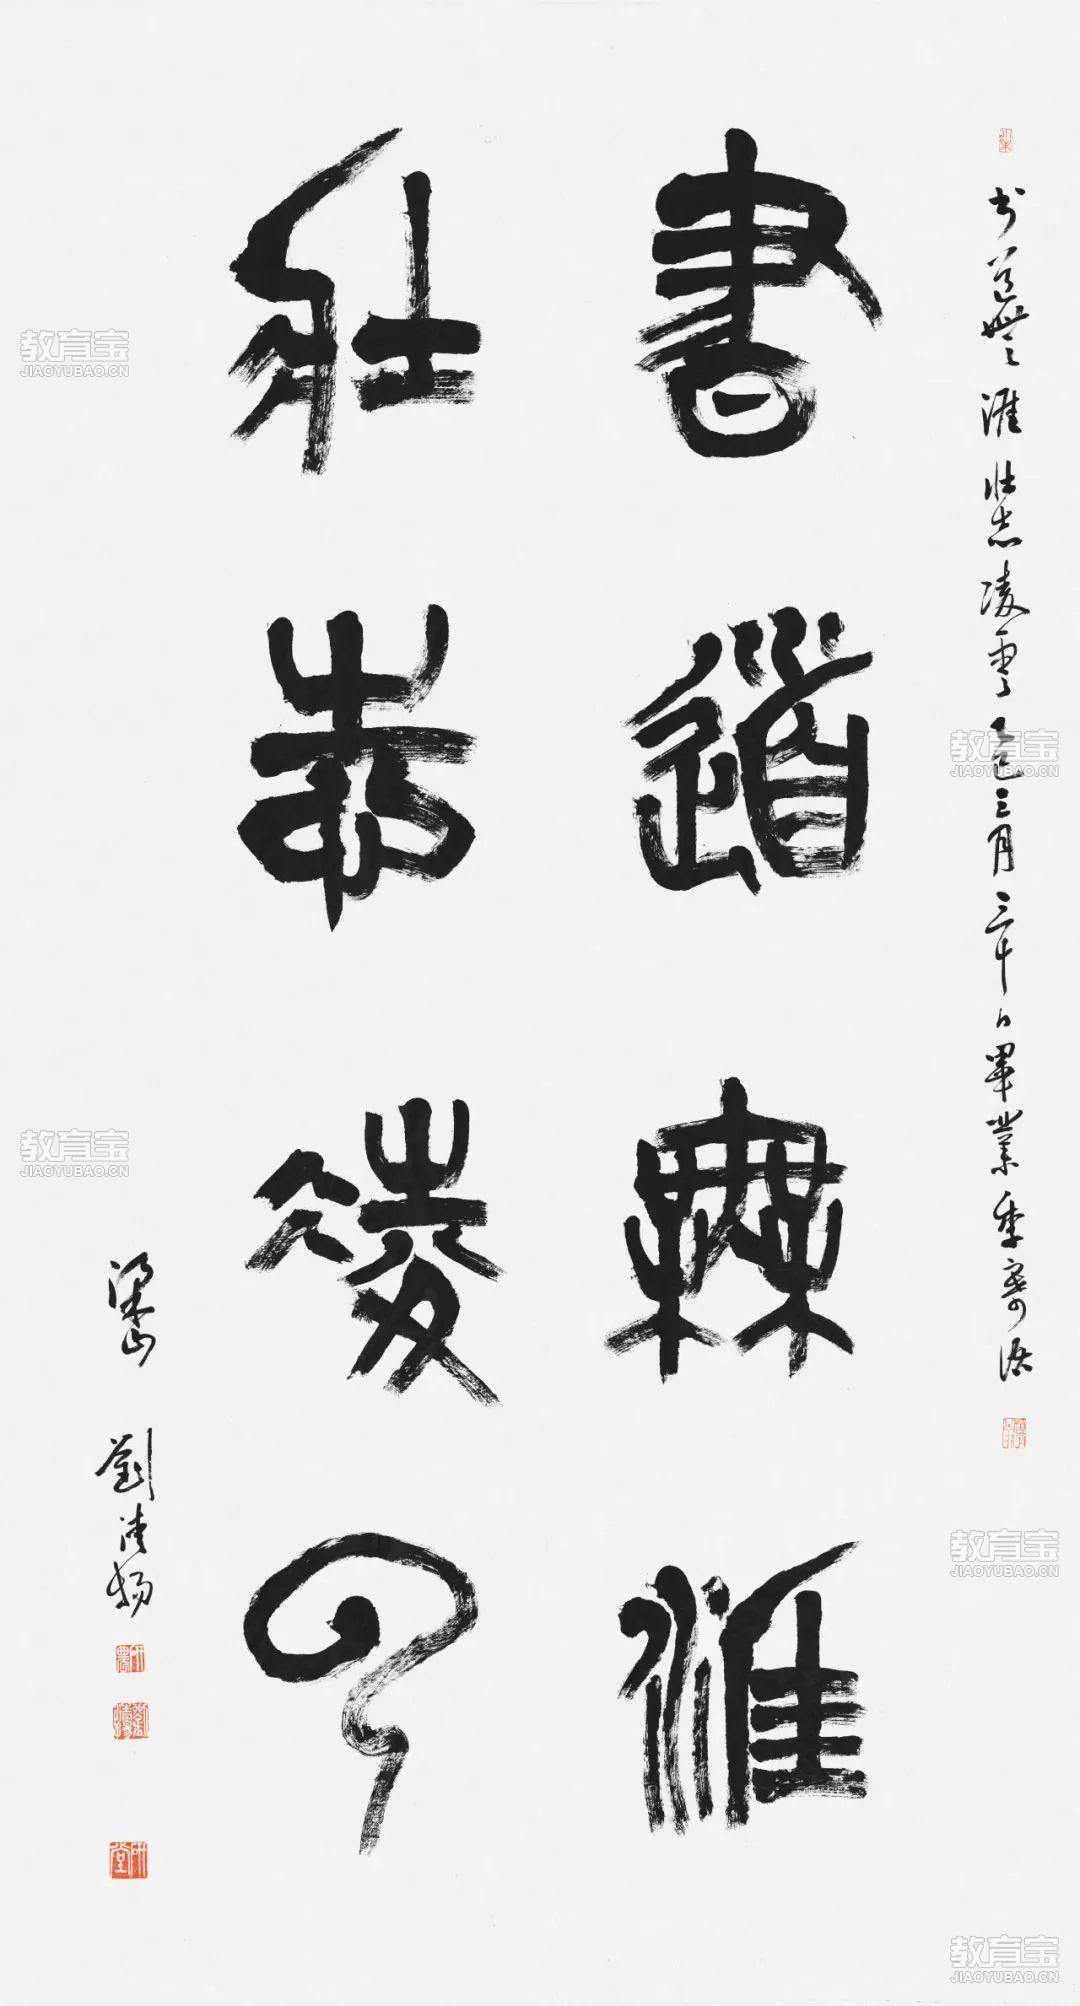 書道無涯
壯志凌雲
书道無涯壮志凌雲乙巳三月三十日畢業季寄语
梁山
劉清揚
教育宝
JIAOYUBAO.CN
教育宝
JIAOYUBAO.CN
教育宝
JIAOYUBAO.CN
教育宝
JIAOYUBAO.CN
教育宝
JIAOYUBAO.CN